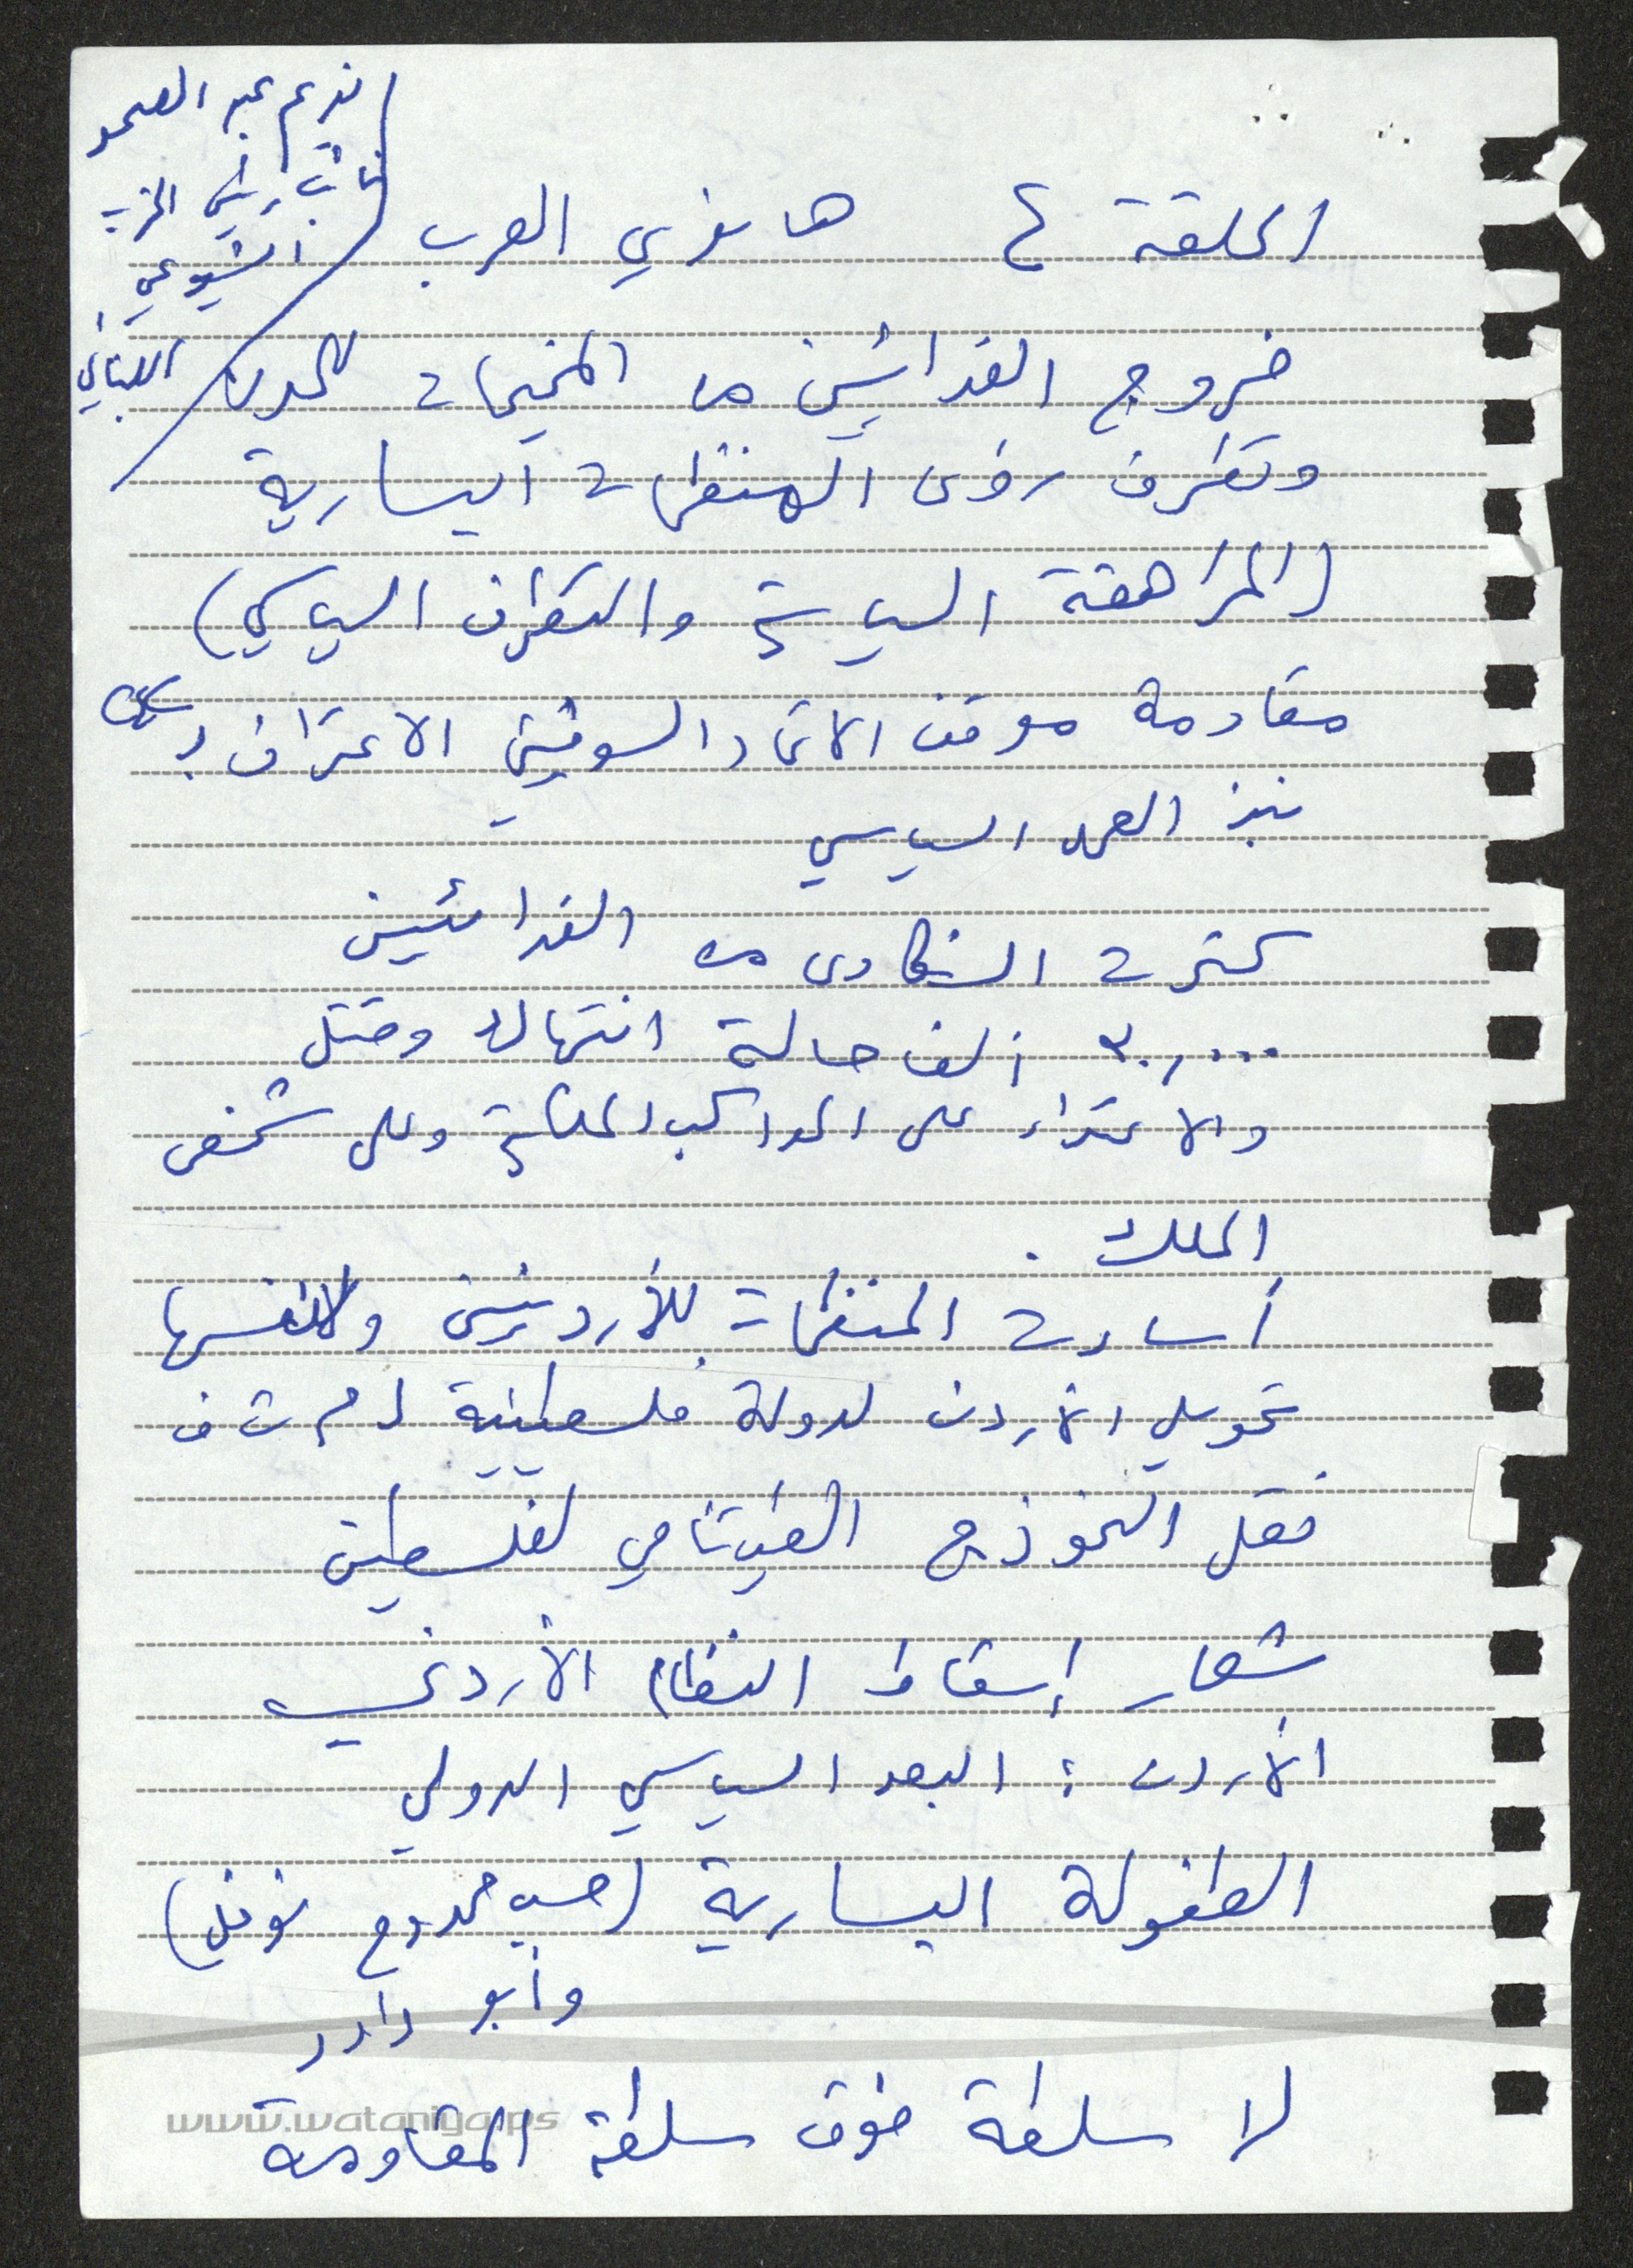 نديم عبد الصمد
نائب رئيس الحزب
الشيوعي
اللبناني
الحلقة ٤ هانوي العرب
خروج الفدائيين من المخيمات للمدن
وتطرف رؤى المنظمات اليسارية
(المراهقة السياسية والتطرف السياسي)
مقاومة موقف الاتحاد السوفيتي الاعتراف بـ
نبذ العمل السياسي
كثرت الشكاوى من الفدائيين
٣٠,٠٠٠ ألف حالة انتهاك وقتل
والاعتداء على المواكب الملكية وعلى شخص
الملك .
أساءت المنظمات للأردنيين ولأنفسها
تحويل الأردن لدولة فلسطينية ل م ت ف
نقل النموذج الفيتنامي لفلسطين
شعار إسقاط النظام الأردني
الأردن : البعد السياسي الدولي
الطفولة اليسارية (حسب ممدوح نوفل)
وأبو داود
لا سلطة فوق سلطة المقاومة
www.wataniya.ps